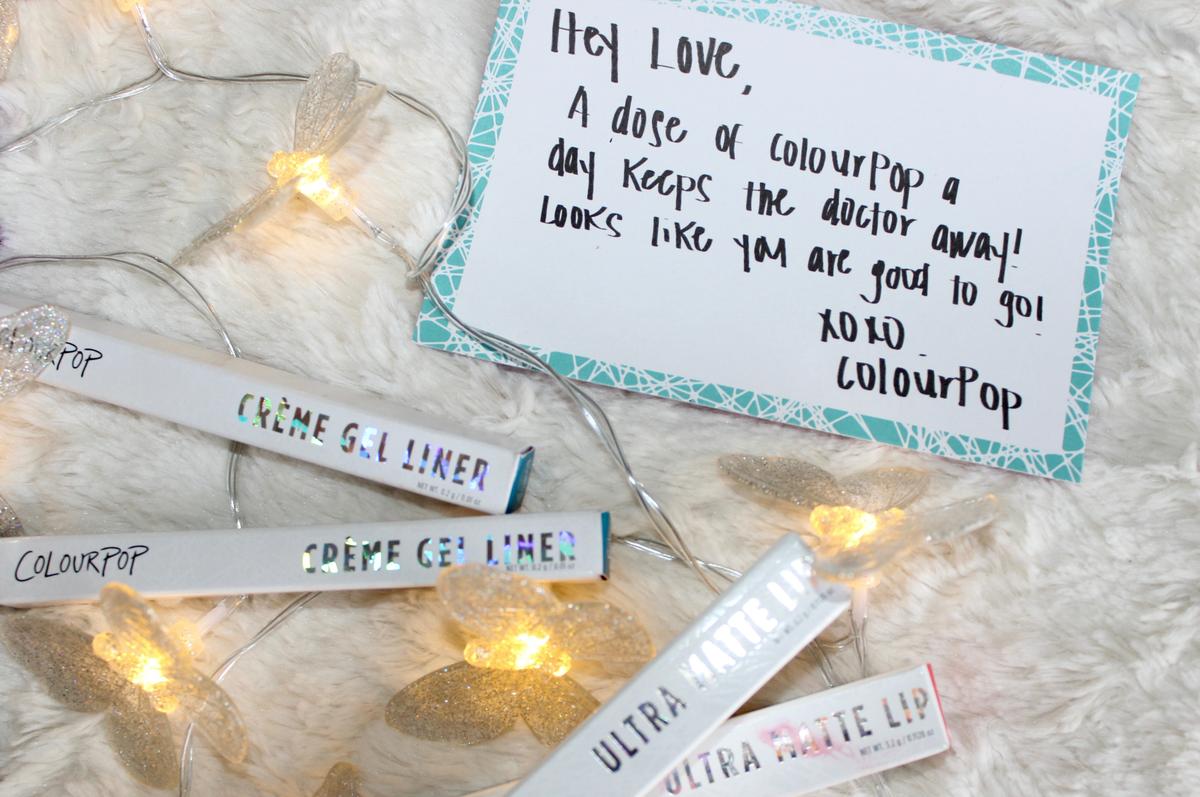 Hey Love,
A dose of ColourPop a
day keeps the doctor away!
Looks like you are good to go!
xoxo
ColourPop
CRÈME GEL LINER
NET WT. 0.2 g / 0.01 oz
COLOURPOP
CRÈME GEL LINER
NET WT. 0.2 g / 0.01 oz
ULTRA MATTE LIP
ULTRA MATTE LIP